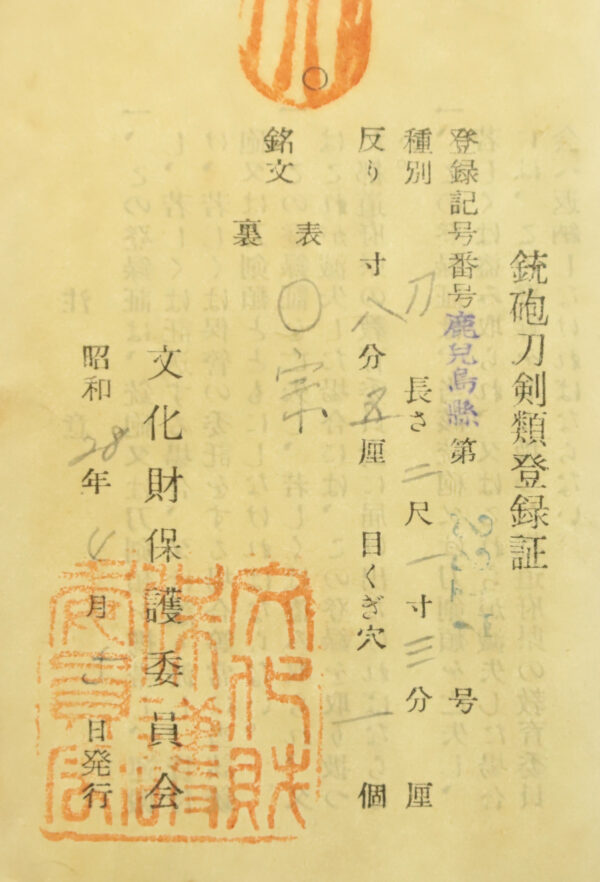 銃砲刀剣類登録証
登録記号番号鹿兒島縣第 号
種別 刀 長さ二尺一寸三分 厘
反り 寸八分五厘 目くぎ穴 一 個
銘文 表 〇宗
裏
文化財保護委員会
昭和28年 月 日発行
文化財保護委員会